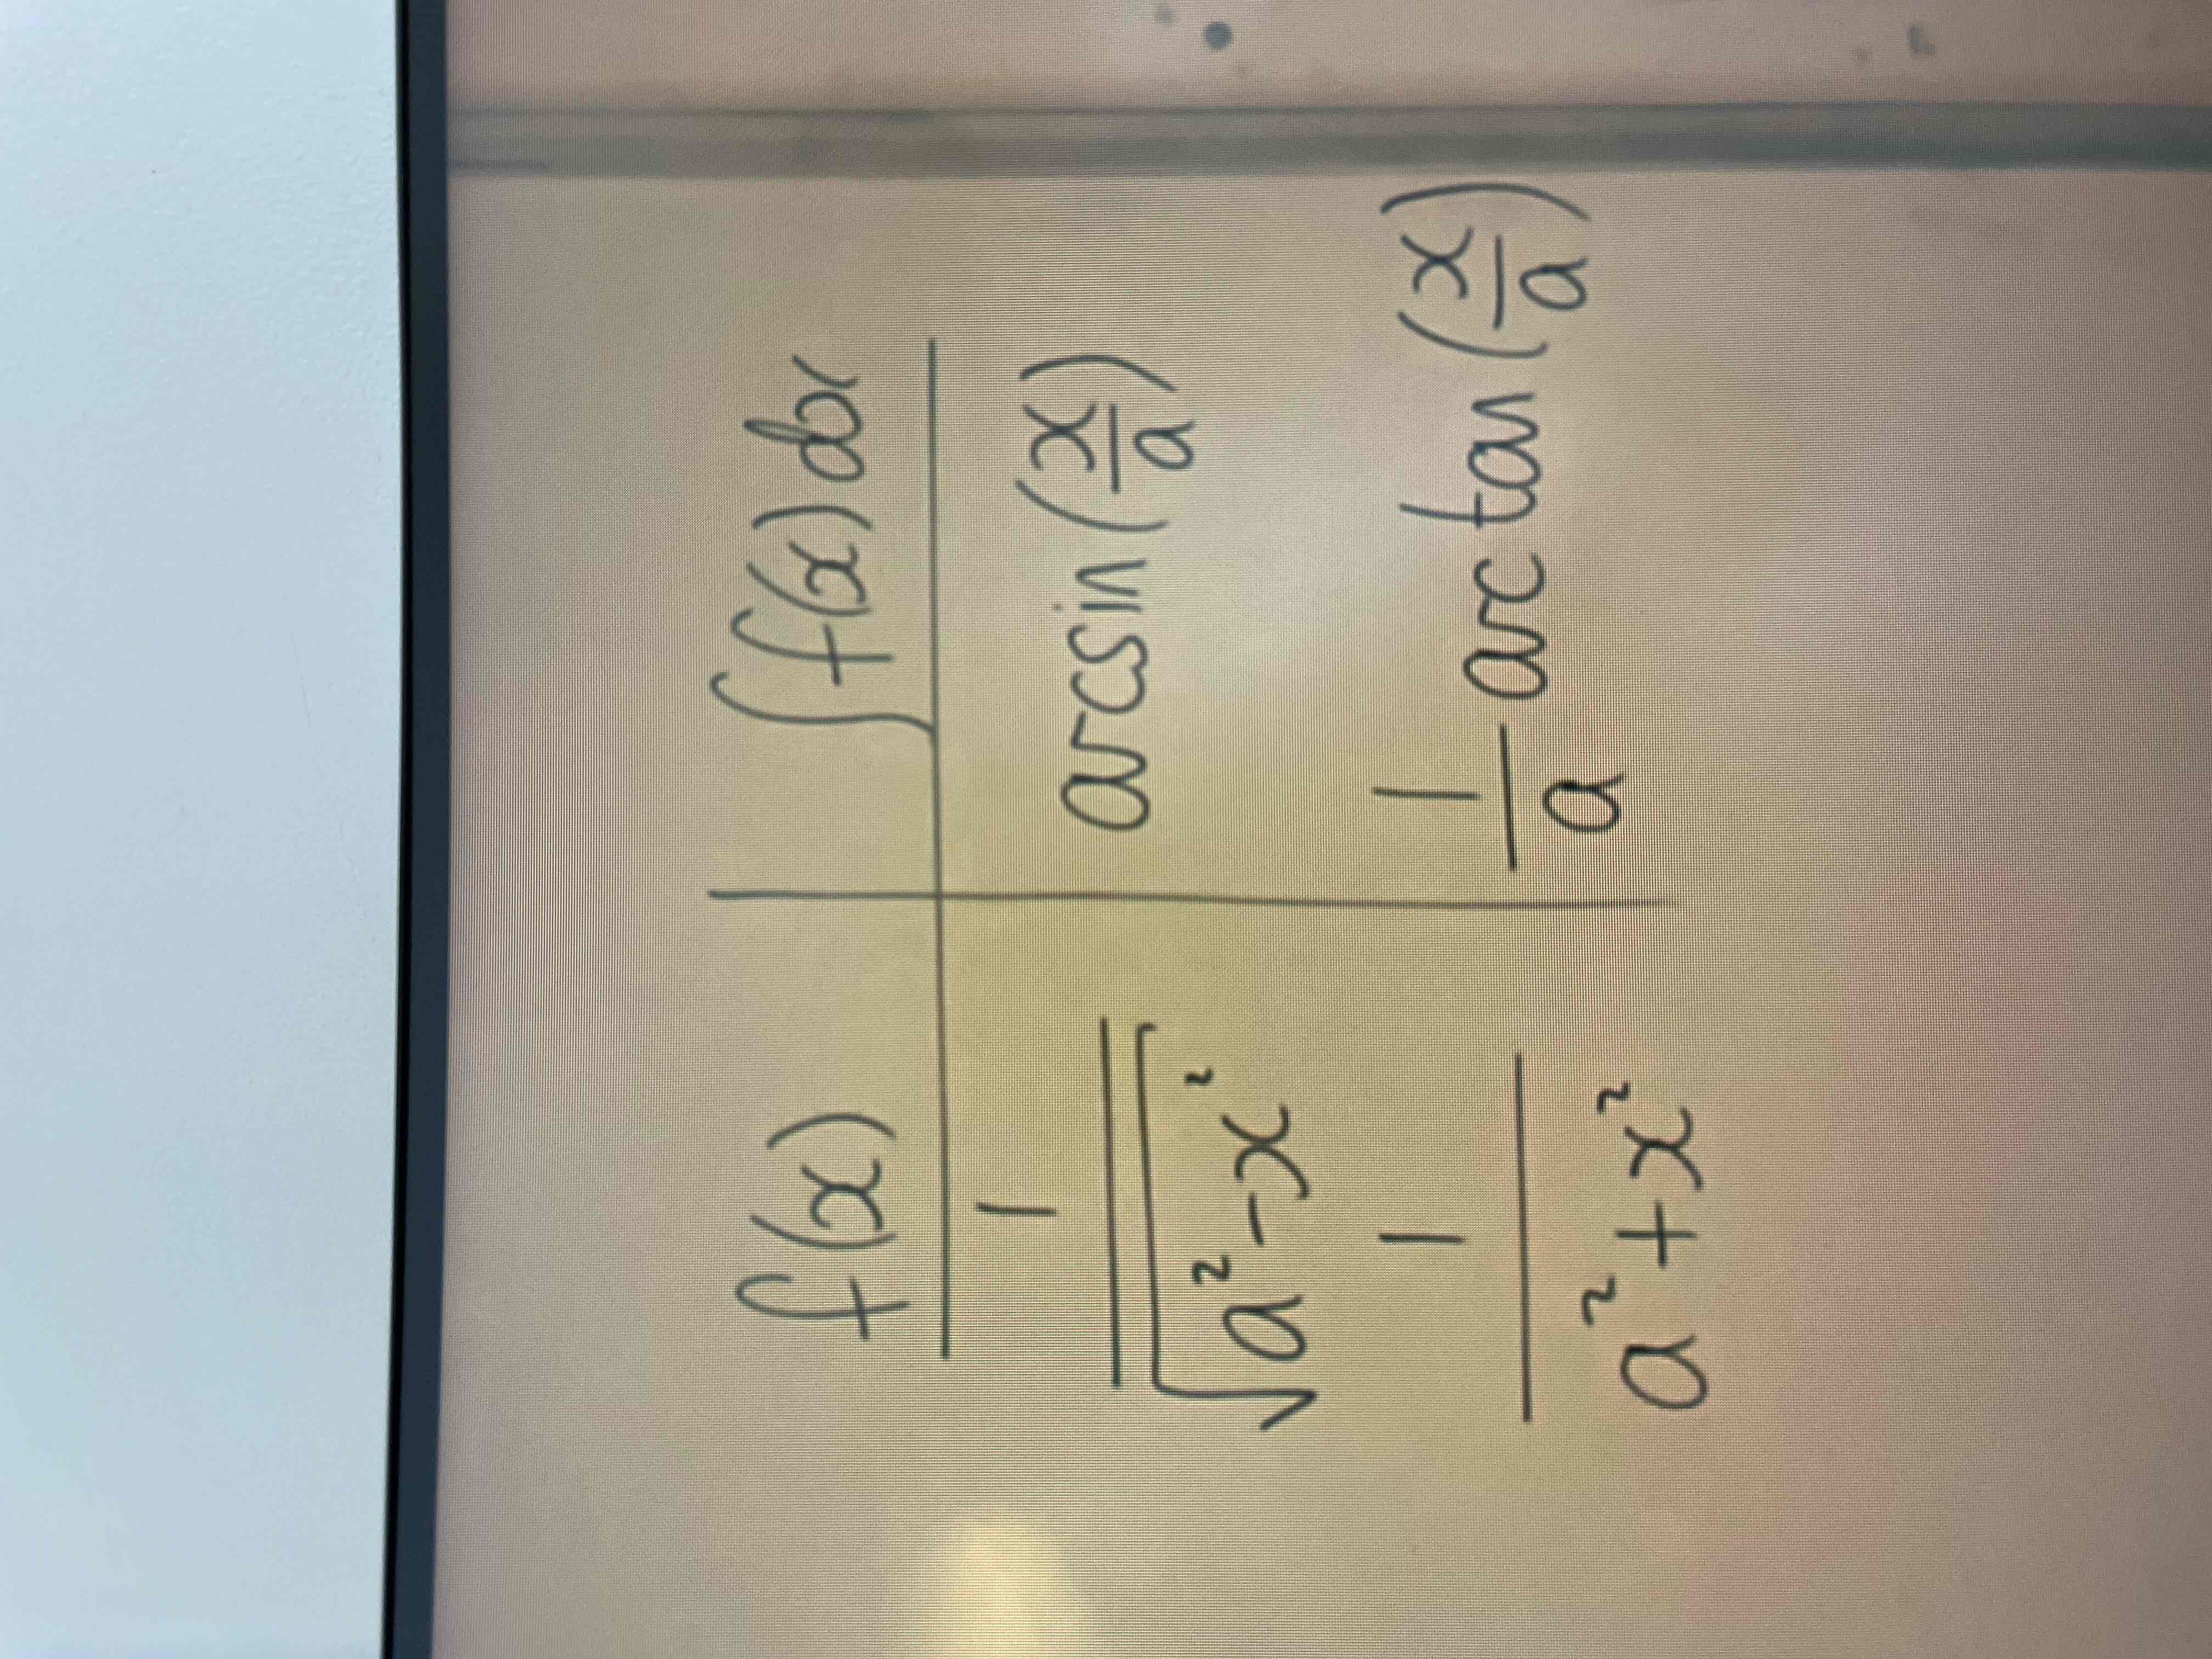 f(x) ∫f(x)dx
1/√(a²-x²) arcsin(x/a)
1/(a²+x²) 1/a arctan(x/a)